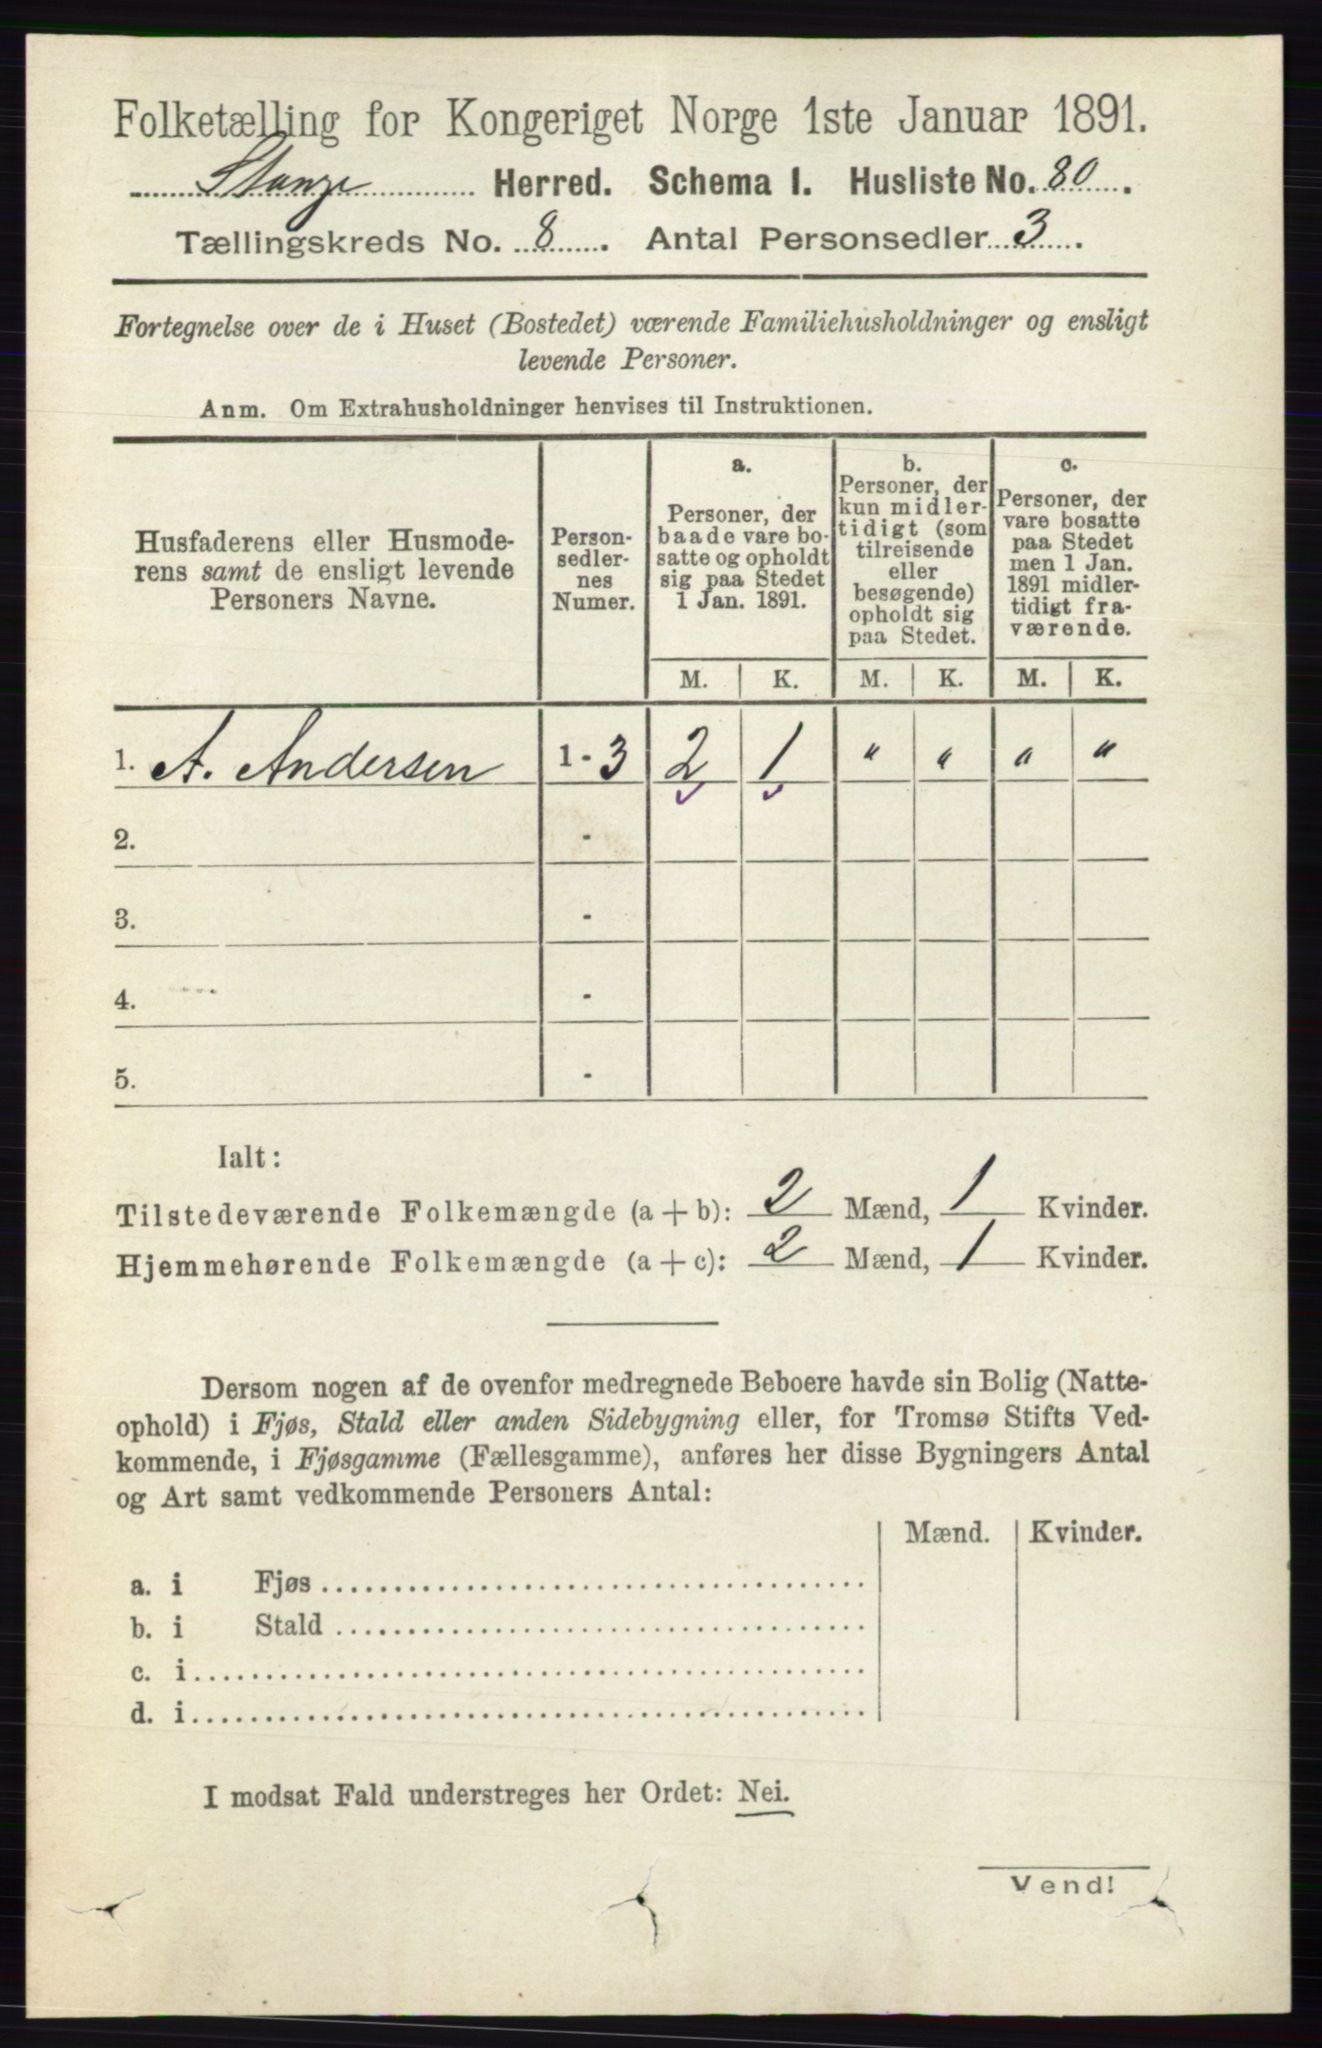 Folketælling for Kongeriget Norge 1ste Januar 1891.
Stange Herred. Schema I. Husliste No. 80.
Tællingskreds No. 8. Antal Personsedler 3.
Fortegnelse over de i Huset (Bostedet) værende Familiehusholdninger og ensligt
levende Personer.
Anm. Om Extrahusholdninger henvises til Instruktionen.
Husfaderens eller Husmode-
rens samt de ensligt levende
Personers Navne.
Person-
sedler-
nes
Numer.
a.
Personer, der
baade vare bo-
satte og opholdt
sig paa Stedet
1 Jan. 1891.
b.
Personer, der
kun midler-
tidigt (som
tilreisende
eller
besøgende)
opholdt sig
paa Stedet.
c.
Personer, der
vare bosatte
paa Stedet
men 1 Jan.
1891 midler-
tidigt fra-
værende.
M. K. M. K. M. K.
1. A. Andersen 1 - 3 2 1 " " " "
2. -
3. -
4. -
5. -
Ialt:
Tilstedeværende Folkemængde (a + b): 2 Mænd, 1 Kvinder.
Hjemmehørende Folkemængde (a + c): 2 Mænd, 1 Kvinder.
Dersom nogen af de ovenfor medregnede Beboere havde sin Bolig (Natte-
ophold) i Fjøs, Stald eller anden Sidebygning eller, for Tromsø Stifts Ved-
kommende, i Fjøsgamme (Fællesgamme), anføres her disse Bygningers Antal
og Art samt vedkommende Personers Antal:
Mænd. Kvinder.
a. i Fjøs
b. i Stald
c. i
d. i
I modsat Fald understreges her Ordet: Nei.
Vend!